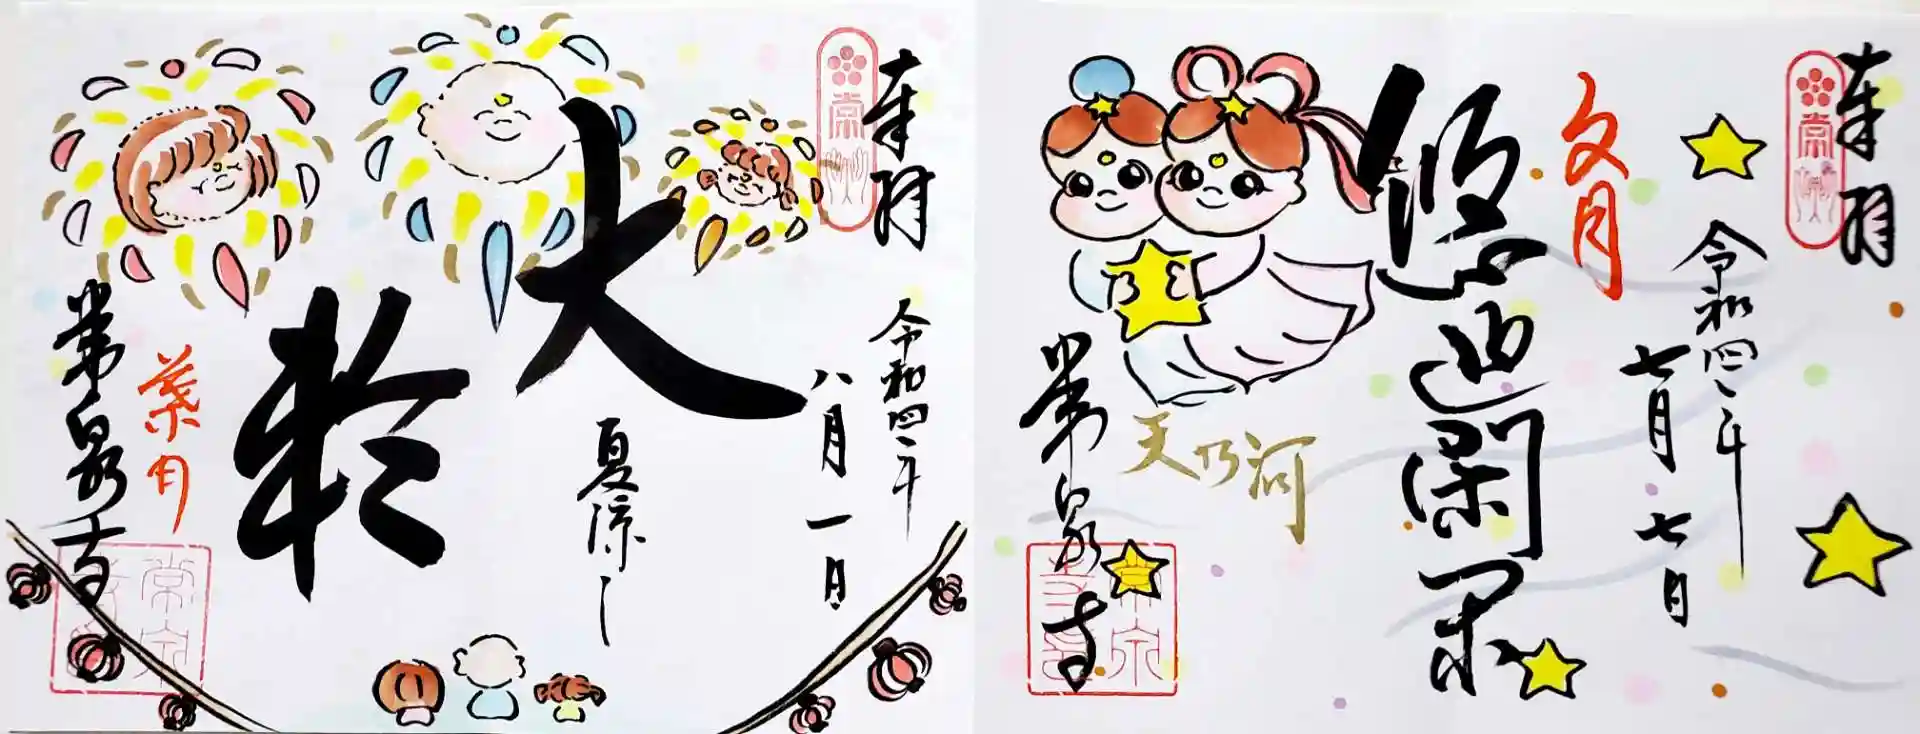 奉拝
令和四年
八月一日
大
夏涼し
葉月
常泉寺
奉拝
令和四年
七月七日
文月
悠 閑
天乃河
常泉寺